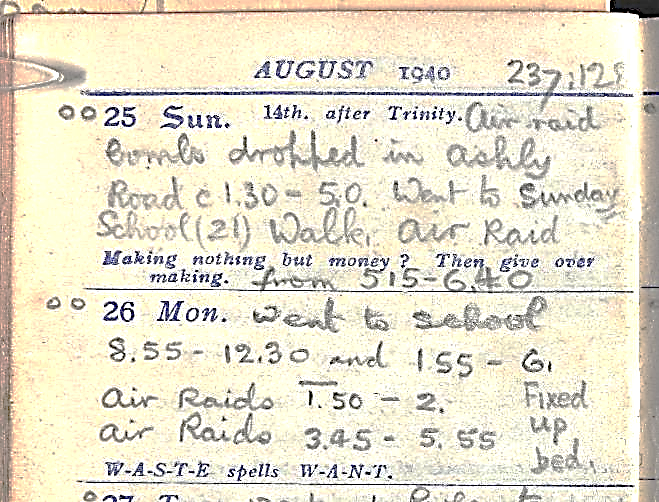 AUGUST 1940 237:128
25 Sun. 14th. after Trinity. Air raid
bombs dropped in ashly
Road c 1.30 - 5.0. Went to Sunday
School (21) Walk. air Raid
Making nothing but money? Then give over
making. from 515-6.40
26 Mon. went to school
8.55 - 12.30 and 1.55 - 6.
air Raids 1.50 - 2. Fixed
air Raids 3.45 - 5.55 up
W-A-S-T-E spells W-A-N-T. bed.
27